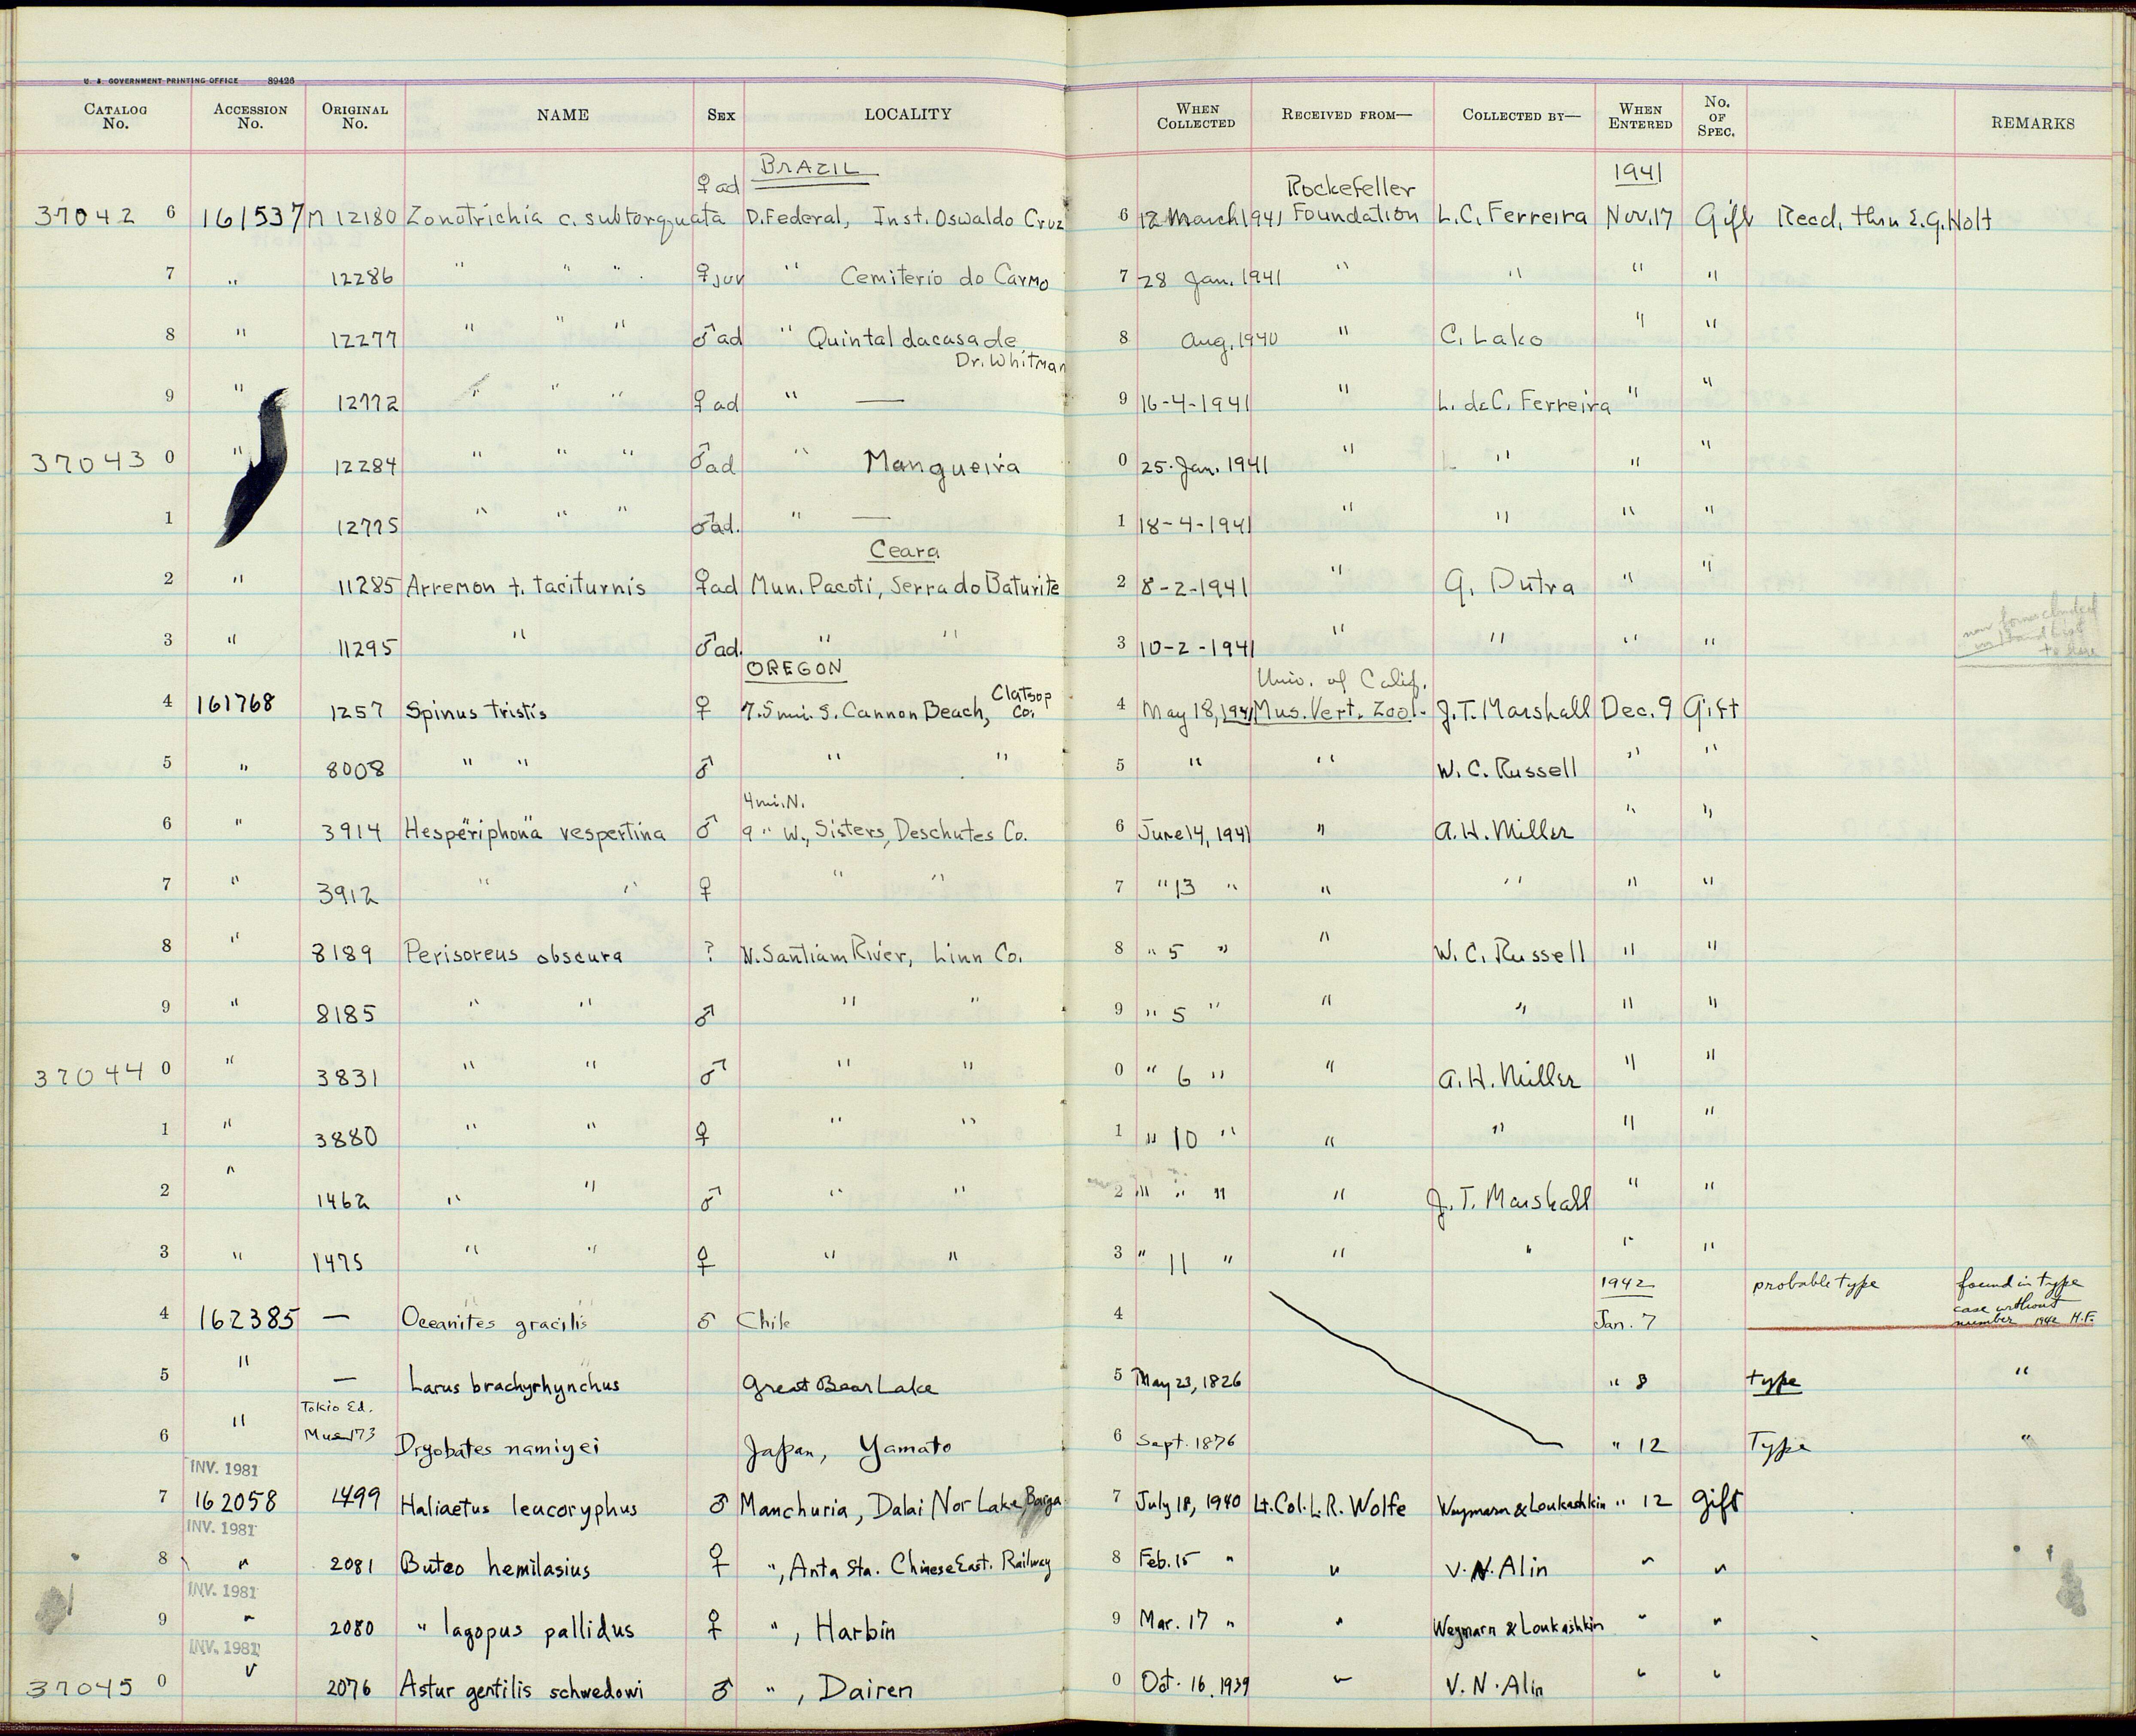 U. S. GOVERNMENT PRINTING OFFICE 89426
CATALOG No. ACCESSION No. ORIGINAL No. NAME SEX LOCALITY WHEN COLLECTED RECEIVED FROM— COLLECTED BY— WHEN ENTERED No. OF SPEC. REMARKS
BRAZIL 1941
♀ad Rockefeller
37042 6 161537 M 12180 Zonotrichia c. subtorquata D.Federal, Inst. Oswaldo Cruz 6 12 March 1941 Foundation L.C. Ferreira Nov.17 Gift Recd. thru E.G. Holt
7 " 12286 " " " ♀juv " Cemiterio do Carmo 7 28 Jan. 1941 " " " "
8 " 12277 " " " ♂ad " Quintal da casa de 8 Aug. 1940 " C. Lako " "
Dr. Whitman
9 " 12772 " " " ♀ad " — 9 16-4-1941 " L. de C. Ferreira " "
37043 0 " 12284 " " " ♂ad " Mangueira 0 25. Jan. 1941 " " " "
1 12775 " " " ♂ad. " — 1 18-4-1941 " " " "
Ceara
2 " 11285 Arremon t. taciturnis ♀ad Mun. Pacoti, Serra do Baturite 2 8-2-1941 " G. Dutra " "
3 " 11295 " ♂ad. " " 3 10-2-1941 " " " "
OREGON Univ. of Calif.
4 161768 1257 Spinus tristis ♀ 7.5 mi. S. Cannon Beach, Clatsop Co. 4 May 18, 1941 Mus. Vert. Zool. J.T. Marshall Dec. 9 Gift
5 " 8008 " " ♂ " " 5 " " W. C. Russell " "
4 mi. N.
6 " 3914 Hesperiphona vespertina ♂ 9 " W., Sisters, Deschutes Co. 6 June 14, 1941 " A. H. Miller " "
7 " 3912 " " ♀ " " 7 " 13 " " " " "
8 " 8189 Perisoreus obscura ? N. Santiam River, Linn Co. 8 " 5 " " W. C. Russell " "
9 " 8185 " " ♂ " " 9 " 5 " " " " "
37044 0 " 3831 " " ♂ " " 0 " 6 " " A. H. Miller " "
1 " 3880 " " ♀ " " 1 " 10 " " " " "
2 " 1462 " " ♂ " " 2 " " " " J. T. Marshall " "
3 " 1475 " " ♀ " " 3 " 11 " " " " "
1942 probable type found in type
4 162385 — Oceanites gracilis ♂ Chile 4 Jan. 7 case without
number 1942 H.F.
5 " — Larus brachyrhynchus Great Bear Lake 5 May 23, 1826 " 8 type "
Tokio Ed.
6 " Mus 173 Dryobates namiyei Japan, Yamato 6 Sept. 1876 " 12 Type "
INV. 1981
7 162058 1499 Haliaetus leucoryphus ♂ Manchuria, Dalai Nor Lake, Barga 7 July 18, 1940 Lt. Col. L.R. Wolfe Weymarn & Loukashkin " 12 Gift
INV. 1981
8 " 2081 Buteo hemilasius ♀ ", Anta Sta. Chinese East. Railway 8 Feb. 15 " " V. N. Alin " "
INV. 1981
9 " 2080 " lagopus pallidus ♀ ", Harbin 9 Mar. 17 " " Weymarn & Loukashkin " "
INV. 1981
37045 0 " 2076 Astur gentilis schwedowi ♂ ", Dairen 0 Oct. 16, 1939 " V. N. Alin " "